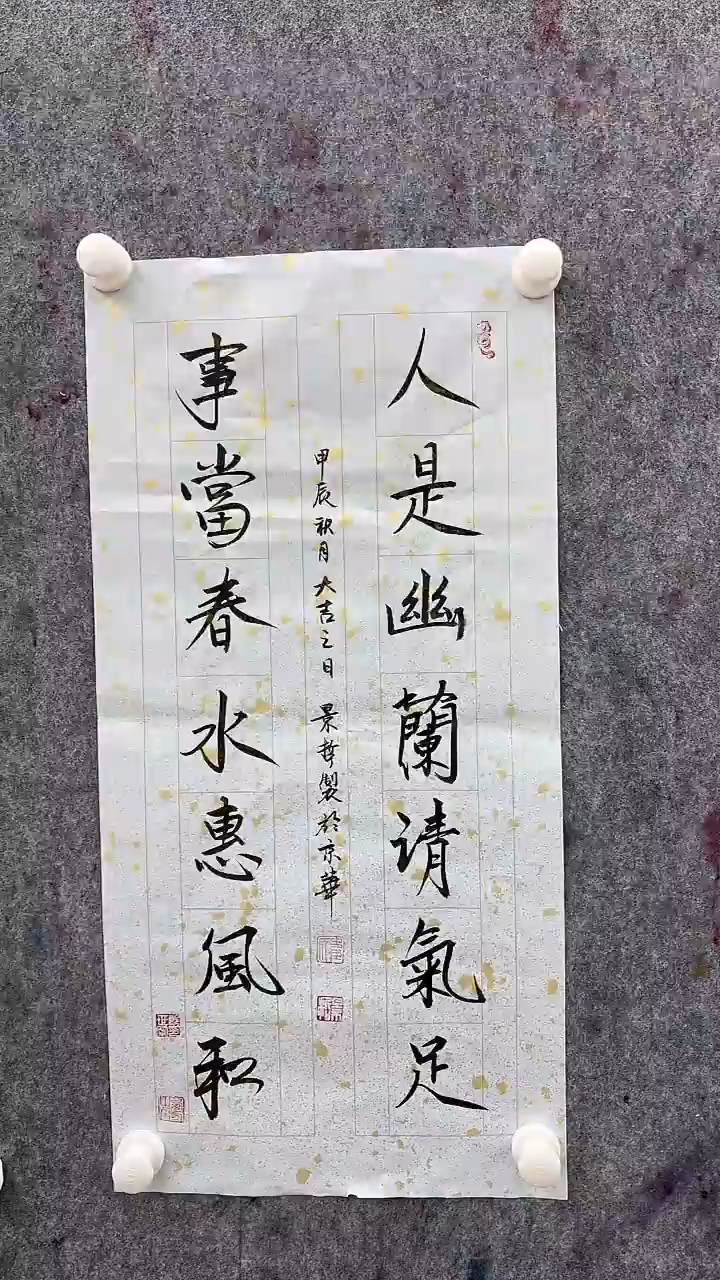 人是幽蘭请氣足
甲辰秋月大吉之日 景哲製於京華
事當春水惠風和